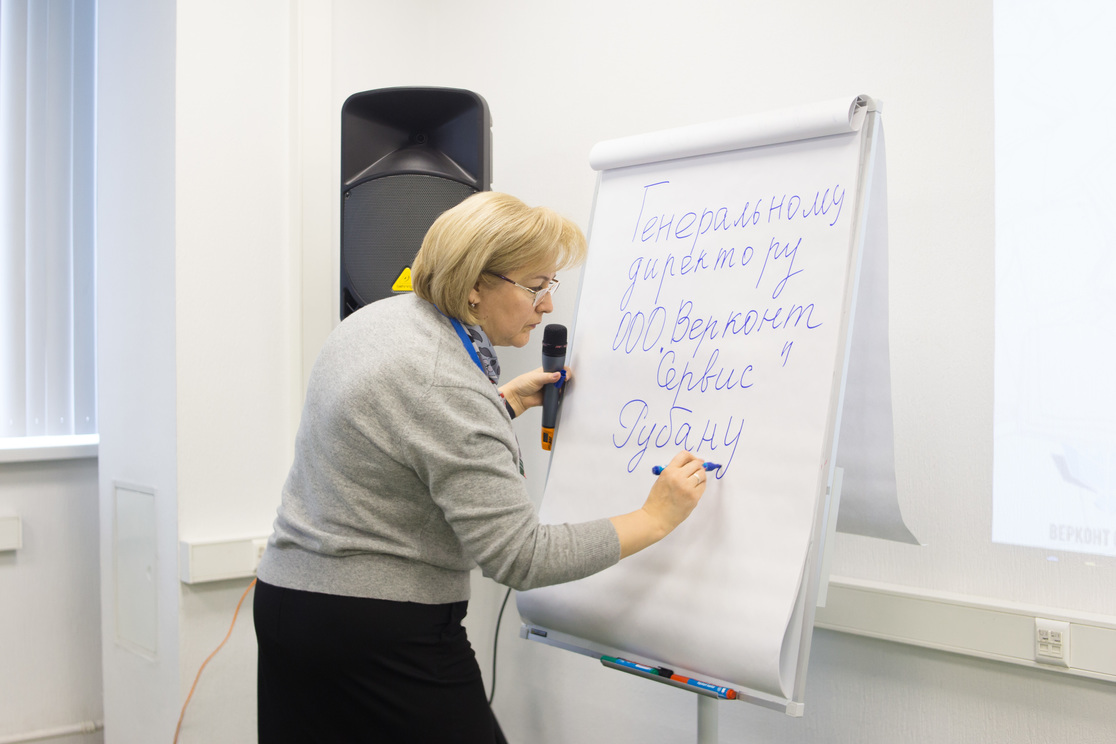 Генеральному
директору
ООО "Верконт
Сервис"
Рубану
ВЕРКОНТ